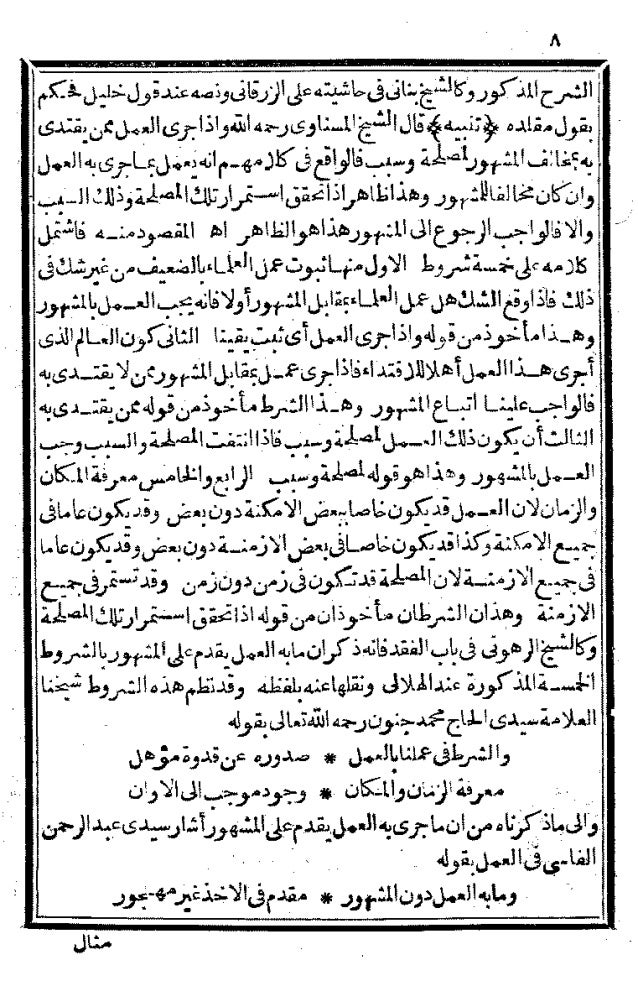 ٨
الشرح المذكور وكالشيخ بنانى فى حاشيته على الزرقانى ونصه عند قول خليل فحكم
بقول مقلده ﴿تنبيه﴾ قال الشيخ المسناوى رحمه الله واذا جرى العمل ممن يقتدى
به بمخالف المشهور لمصلحة وسبب فالواقع فى كلامهم انه يعمل بما جرى به العمل
وان كان مخالفا للمشهور وهذا ظاهر اذا تحقق استمرار تلك المصلحة وذلك السبب
والا فالواجب الرجوع الى المشهور هذا هو الظاهر اه المقصود منه فاشتمل
كلامه على خمسة شروط الاول منها ثبوت عمل العلماء بالضعيف من غير شك فى
ذلك فاذا وقع الشك هل عمل العلماء بمقابل المشهور أولا فانه يجب العمل بالمشهور
وهذا مأخوذ من قوله واذا جرى العمل أى ثبت يقينا الثانى كون العالم الذى
أجرى هذا العمل أهلا للاقتداء فاذا جرى عمل بمقابل المشهور ممن لا يقتدى به
فالواجب علينا اتباع المشهور وهذا الشرط مأخوذ من قوله ممن يقتدى به
الثالث أن يكون ذلك العمل لمصلحة وسبب فاذا انتفت المصلحة والسبب وجب
العمل بالمشهور وهذا هو قوله لمصلحة وسبب الرابع والخامس معرفة المكان
والزمان لان العمل قد يكون خاصا ببعض الامكنة دون بعض وقد يكون عاما فى
جميع الامكنة وكذا قد يكون خاصا فى بعض الازمنة دون بعض وقد يكون عاما
فى جميع الازمنة لان المصلحة قد تكون فى زمن دون زمن وقد تستمر فى جميع
الازمنة وهذان الشرطان مأخوذان من قوله اذا تحقق استمرار تلك المصلحة
وكالشيخ الرهونى فى باب الفقد فانه ذكر ان ما به العمل يقدم على المشهور بالشروط
الخمسة المذكورة عند الهلالى ونقلها عنه بلفظه وقد نظم هذه الشروط شيخنا
العلامة سيدى الحاج محمد جنون رحمه الله تعالى بقوله
والشرط فى عملنا بالعمل * صدوره عن قدوة مؤهل
معرفة الزمان والمكان * وجود موجب الى الاوان
والى ما ذكرناه من ان ما جرى به العمل يقدم على المشهور أشار سيدى عبد الرحمن
الفاسى فى العمل بقوله
وما به العمل دون المشهور * مقدم فى الاخذ غير مهجور
مثال